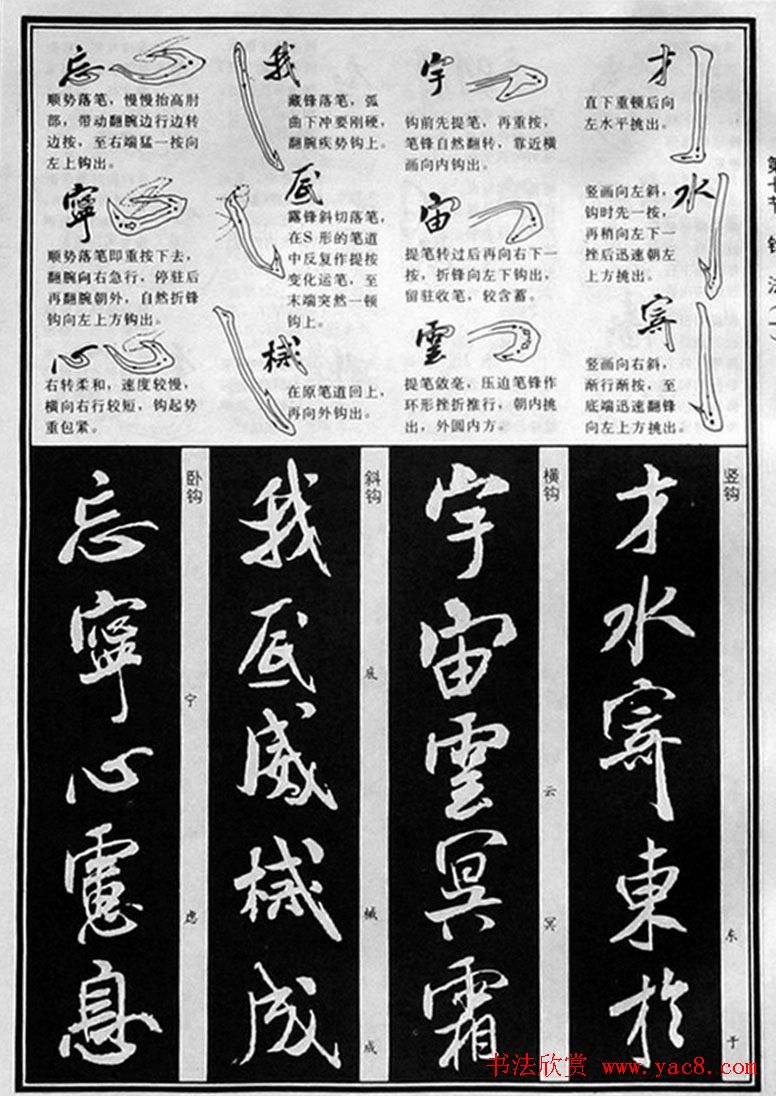 才
直下重顿后向
左水平挑出。
水
竖画向左斜，
钩时先一按，
再稍向左下一
挫后迅速朝左
上方挑出。
竖画向右斜，
渐行渐按，至
底端迅速翻锋
向左上方挑出。
宇
钩前先提笔，再重按，
笔锋自然翻转，靠近横
画向内钩出。
宙
提笔转过后再向右下一
按，折锋向左下钩出，
留驻收笔，较含蓄。
雲
提笔敛毫，压边笔锋作
环形挫折推行，朝内挑
出，外圆内方。
我
藏锋落笔，弧
曲下冲要刚硬，
翻腕疾势钩上。
露锋斜切落笔，
在S形的笔道
中反复作提按
变化运笔，至
末端突然一顿
钩上。
械
在原笔道回上，
再向外钩出。
忘
顺势落笔，慢慢抬高肘
部，带动翻腕边行边转
边按，至右端猛一按向
左上钩出。
寧
顺势落笔即重按下去，
翻腕向右急行，停驻后
再翻腕朝外，自然折锋
钩向左上方钩出。
心
右转柔和，速度较慢，
横向右行较短，钩起势
重包紧。
竖钩
东
于
才水寄東於
横钩
云
冥
宇宙雲冥霜
斜钩
底
械
成
我底威械成
卧钩
宁
虑
忘寧心慮息
书法欣赏 www.yac8.com